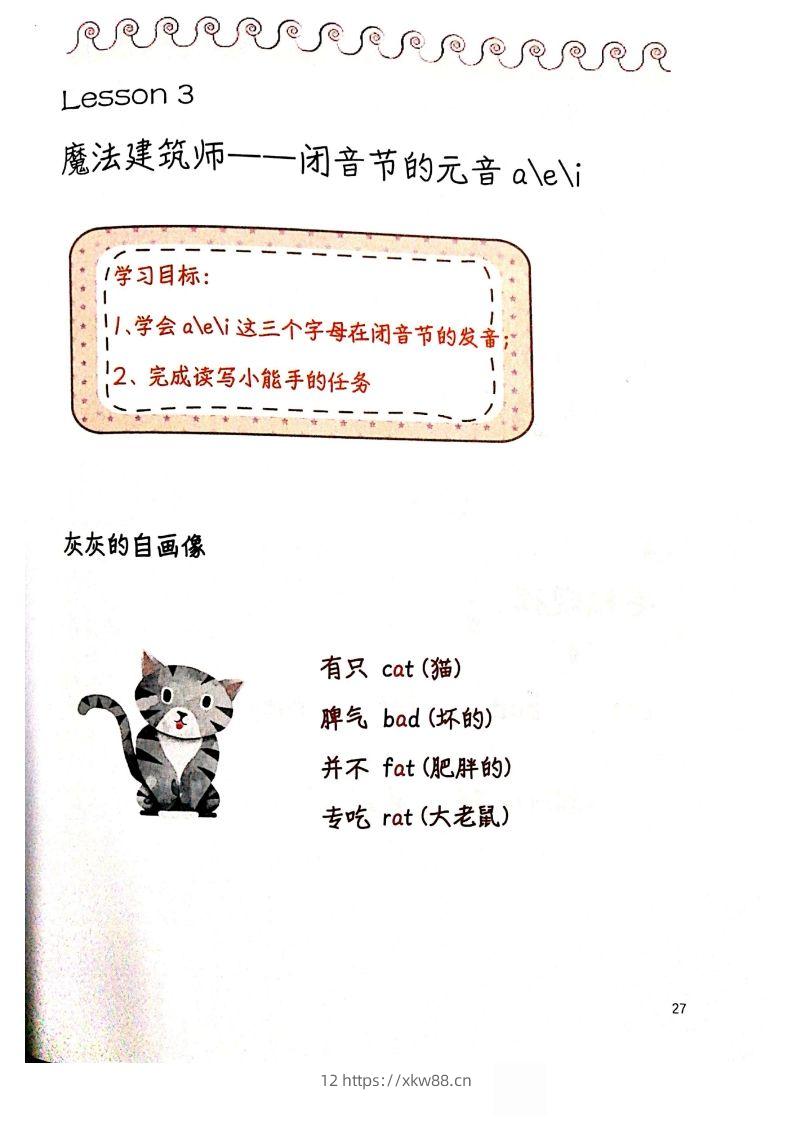 Lesson 3
魔法建筑师——闭音节的元音 a\e\i
学习目标：
1、学会 a\e\i 这三个字母在闭音节的发音；
2、完成读写小能手的任务
灰灰的自画像
有只 cat (猫)
脾气 bad (坏的)
并不 fat (肥胖的)
专吃 rat (大老鼠)
27
12 https://xkw88.cn